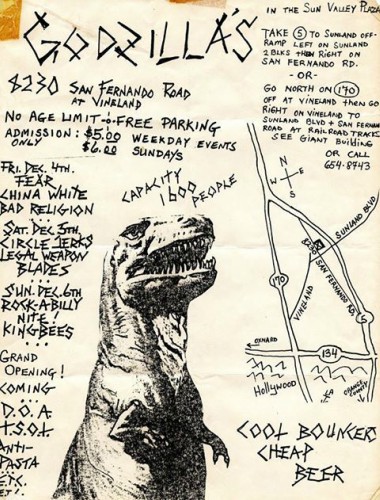 IN THE SUN VALLEY PLAZA
GODZILLA'S
8230 SAN FERNANDO ROAD
AT VINELAND
NO AGE LIMIT - FREE PARKING
ADMISSION: $5.00 WEEKDAY EVENTS
ONLY $6.00 SUNDAYS
TAKE 5 TO SUNLAND OFF-
RAMP LEFT ON SUNLAND
2 BLKS THEN RIGHT ON
SAN FERNANDO RD.
-OR-
GO NORTH ON 170
OFF AT VINELAND THEN GO
RIGHT ON VINELAND TO
SUNLAND BLVD & SAN FERNAN
ROAD AT RAILROAD TRACK
SEE GIANT BUILDING
OR CALL
654-8743
FRI. DEC. 4TH.
FEAR
CHINA WHITE
BAD RELIGION
SAT. DEC. 5TH.
CIRCLE JERKS
LEGAL WEAPON
BLADES
SUN. DEC. 6TH
ROCK-A-BILLY
NITE
KINGBEES
GRAND
OPENING!
COMING
D.O.A.
T.S.O.L.
ANTI-
PASTA
ETC.
ET!
CAPACITY
1600 PEOPLE
N
W E
S
SUNLAND BLVD
8230
SAN FERNANDO RD.
5
170
VINELAND
OXNARD
134
HOLLYWOOD
LA
ORANGE
COUNTY
COOL BOUNCERS
CHEAP
BEER